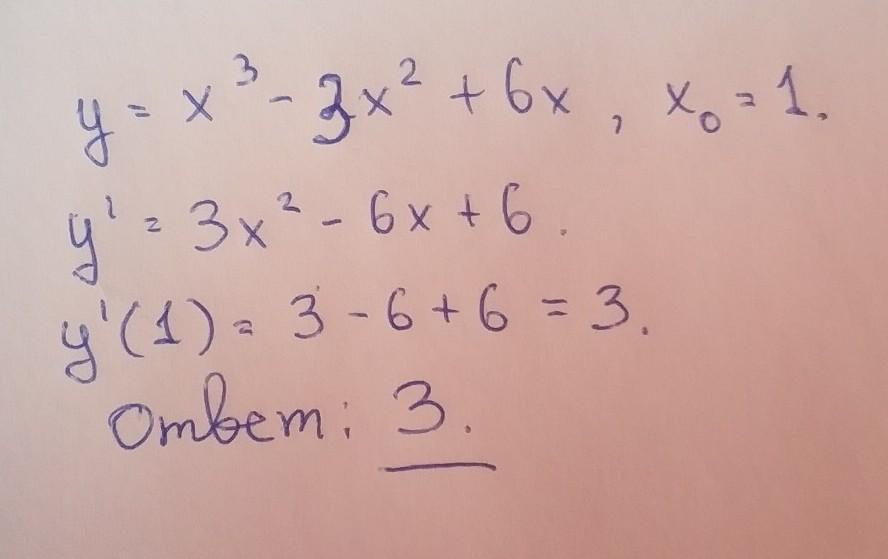 y = x³ - 3x² + 6x , x₀ = 1.
y' = 3x² - 6x + 6.
y'(1) = 3 - 6 + 6 = 3.
Ответ: 3.